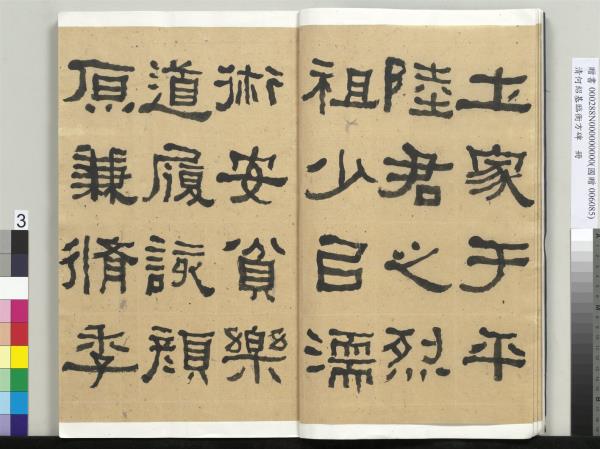 土家于平
陸君之烈
祖少㠯濡
術安貧樂
道履該顏
原兼脩季
贈書 000288N000000000(國贈 006085)
清何紹基臨衡方碑 冊
3